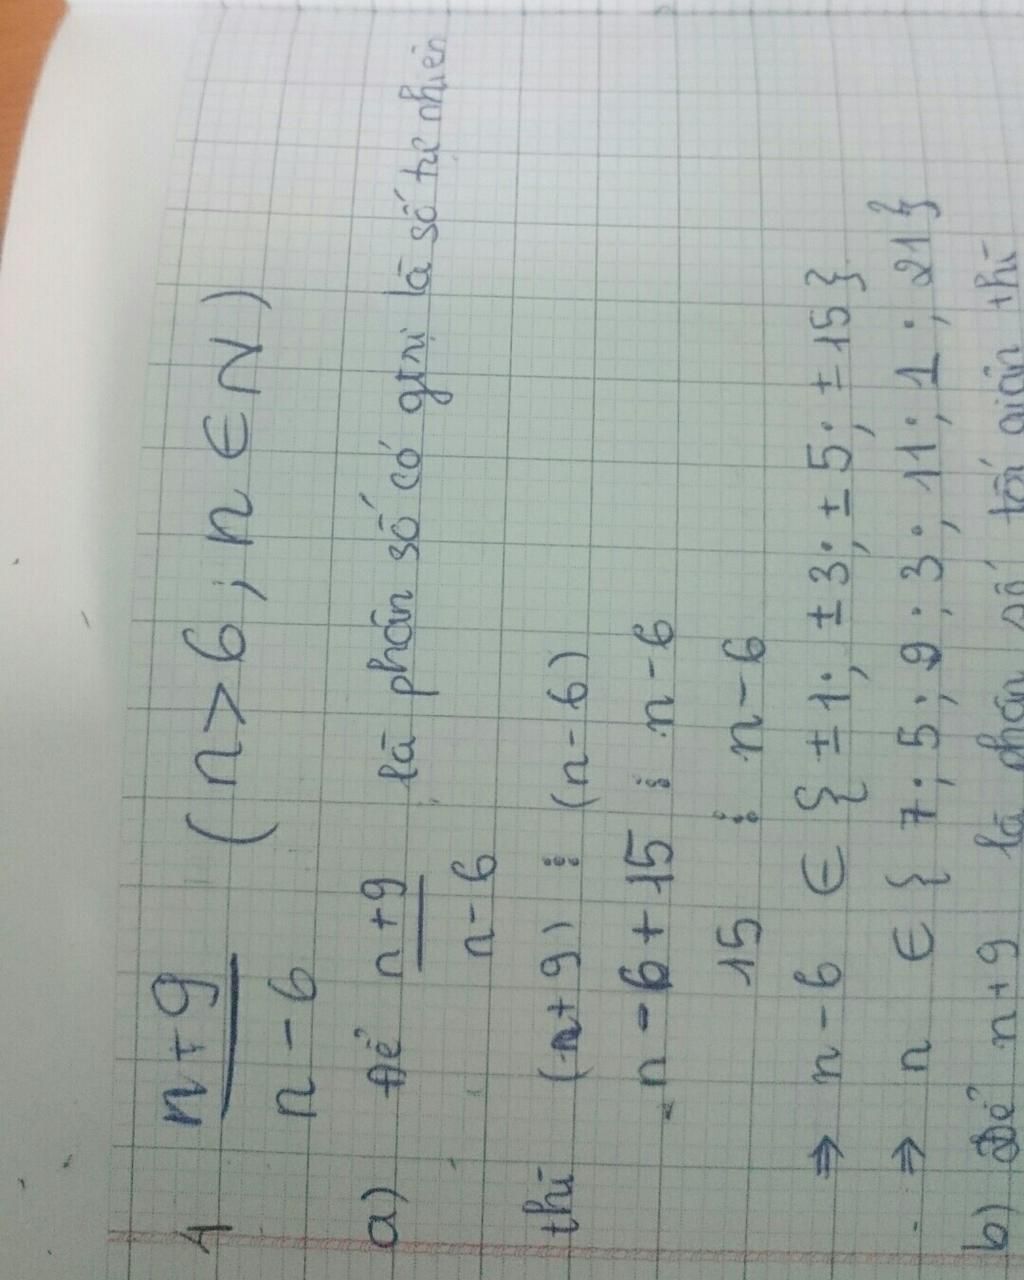 1 n+9 / n-6 (n>6; n∈N)
a) Để n+9 / n-6 là phân số có giá trị là số tự nhiên
thì (n+9) ⋮ (n-6)
n-6+15 ⋮ n-6
15 ⋮ n-6
⇒ n-6 ∈ {±1; ±3; ±5; ±15}
⇒ n ∈ {7; 5; 9; 3; 11; 1; 21}
b) Để n+9 là phân số tối giản thì